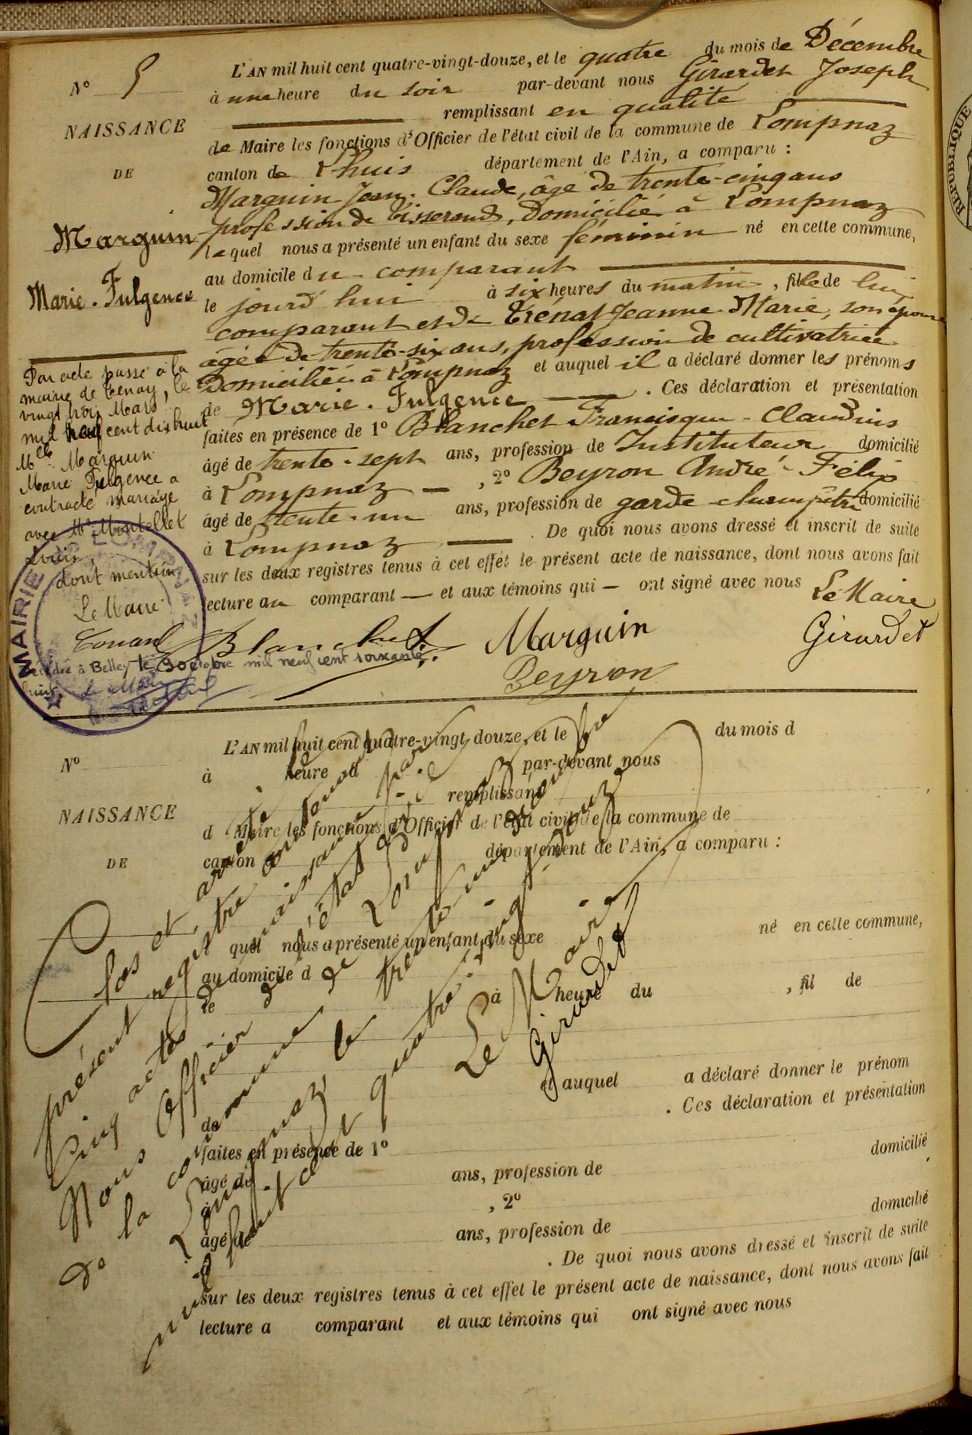 N° 5
NAISSANCE
DE
Marguin
Marie-Fulgence
L'AN mil huit cent quatre-vingt-douze, et le quatre du mois de Décembre
à une heure du soir par-devant nous Girardet Joseph
remplissant en qualité
de Maire les fonctions d'Officier de l'état civil de la commune de Lompnaz
canton de Lhuis département de l'Ain, a comparu :
Marguin Jean-Claude, âgé de trente-cinq ans
profession de tisserand, domicilié à Lompnaz
lequel nous a présenté un enfant du sexe féminin né en cette commune,
au domicile du comparant
le jourd'hui à six heures du matin, fille de lui
comparant et de Trenat Jeanne-Marie, son épouse
âgée de trente-six ans, profession de cultivatrice
domiciliée à Lompnaz et auquel il a déclaré donner les prénoms
de Marie-Fulgence . Ces déclaration et présentation
faites en présence de 1° Blanchet Francisque-Claudius
âgé de trente-sept ans, profession de Instituteur domicilié
à Lompnaz , 2° Beyron André-Félix
âgé de trente-un ans, profession de garde-champêtre domicilié
à Lompnaz . De quoi nous avons dressé et inscrit de suite
sur les deux registres tenus à cet effet le présent acte de naissance, dont nous avons fait
lecture au comparant et aux témoins qui ont signé avec nous
Le Maire
Blanchet Marguin Girardet
Beyron
Par acte passé à la
mairie de Tenay, le
vingt trois Mars,
mil neuf cent dix huit
Melle Marguin
Marie Fulgence a
contracté mariage
avec Mr Montellet
Louis,
dont mention
Le Maire
MAIRIE
à Belley le 30 octobre mil neuf cent soixante
huit
RÉPUBLIQUE
N°
NAISSANCE
DE
L'AN mil huit cent quatre-vingt-douze, et le du mois d
à heure d par-devant nous
remplissant
d Maire les fonctions d'Officier de l'état civil de la commune de
canton département de l'Ain, a comparu :
quel nous a présenté un enfant du sexe né en cette commune,
au domicile d
le à heure du , fil de
et auquel a déclaré donner le prénom
de . Ces déclaration et présentation
faites en présence de 1°
âgé de ans, profession de domicilié
à , 2°
âgé de ans, profession de domicilié
. De quoi nous avons dressé et inscrit de suite
sur les deux registres tenus à cet effet le présent acte de naissance, dont nous avons fait
lecture a comparant et aux témoins qui ont signé avec nous
Clos et arrêté le
présent registre contenant
cinq actes de naissance par
Nous Officier de l'état civil
de la commune de Lompnaz
Lompnaz, le trente-un décembre
mil huit cent quatre-vingt-douze
Le Maire
Girardet